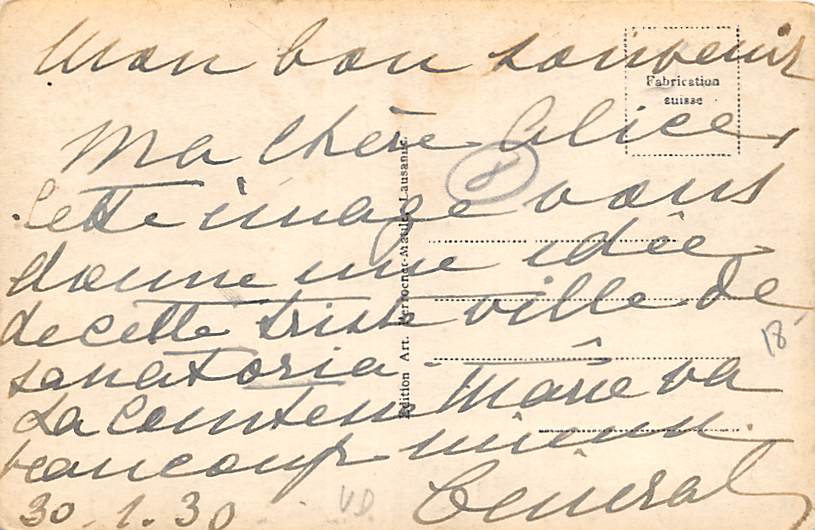 Mon bon souvenir
Fabrication
suisse
Ma chère Alice,
8
Cette image vous
donne une idée
de cette triste ville de
sanatoria.
La Comtesse Marie va
beaucoup mieux.
Général
30.1.30
VD.
18
Edition Art. Perrochet-Matile, Lausanne.